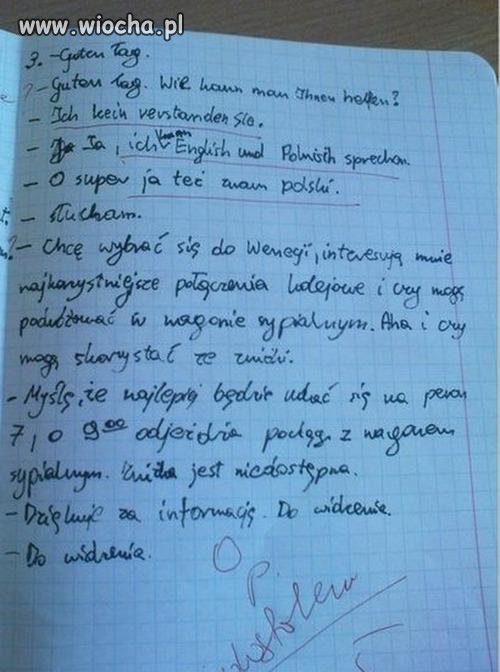 www.wiocha.pl
3. - Guten Tag.
? - Guten Tag. Wie kann man Ihnen helfen?
- Ich kein verstanden Sie.
- Ja, ich kann English und Polnisch sprechen.
- O super ja też znam polski.
- Słucham.
- Chcę wybrać się do Wenegi, interesują mnie
najkorzystniejsze połączenia kolejowe i czy mogę
podróżować w wagonie sypialnym. Aha i czy
mogę skorzystać ze zniżki.
- Myślę, że najlepiej będzie udać się na peron
7, o 9⁰⁰ odjeżdża pociąg z wagonem
sypialnym. Zniżka jest niedostępna.
- Dziękuję za informację. Do widzenia.
- Do widzenia.
O
P.